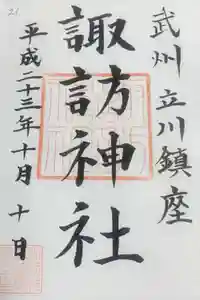 武州 立川鎮座
諏訪神社
平成二十三年十月 十日
21